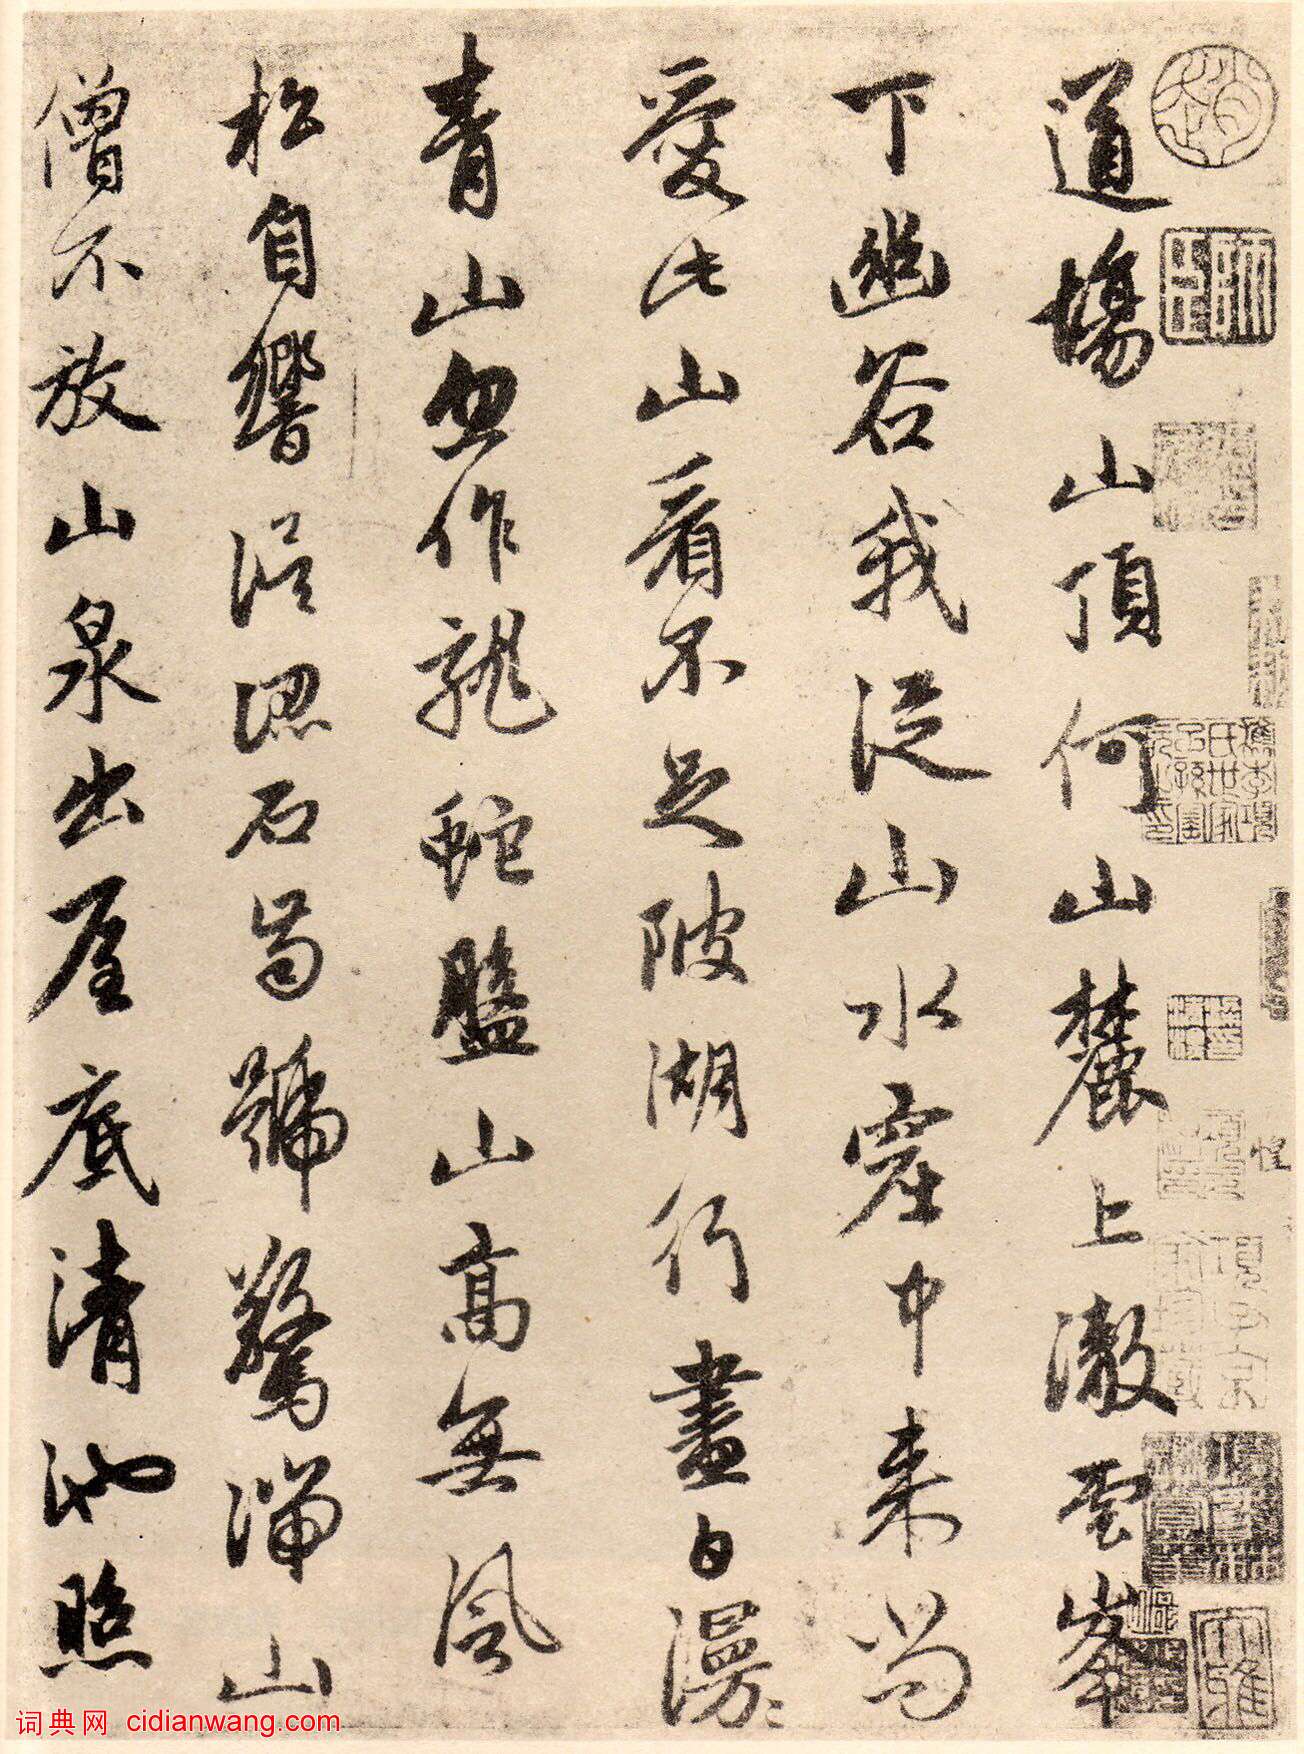 道場山頂何山麓上澈雲峯
下幽谷我從山水窟中來尚
愛此山看不足陂湖行盡白漫〻
青山忽作龍蛇盤山高無風
松自響誤認石齒號驚湍山
僧不放山泉出屋底清池照
大雅
词典网 cidianwang.com